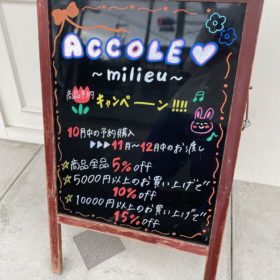 ACCOLE♡
～milieu～
商品予約
キャンペーン!!!!
10月中の予約購入
▶▶▶11月～12月中のお渡し
☆商品全品 5%off
☆5000円以上のお買い上げで
10%off
☆10000円以上のお買い上げで
15%off